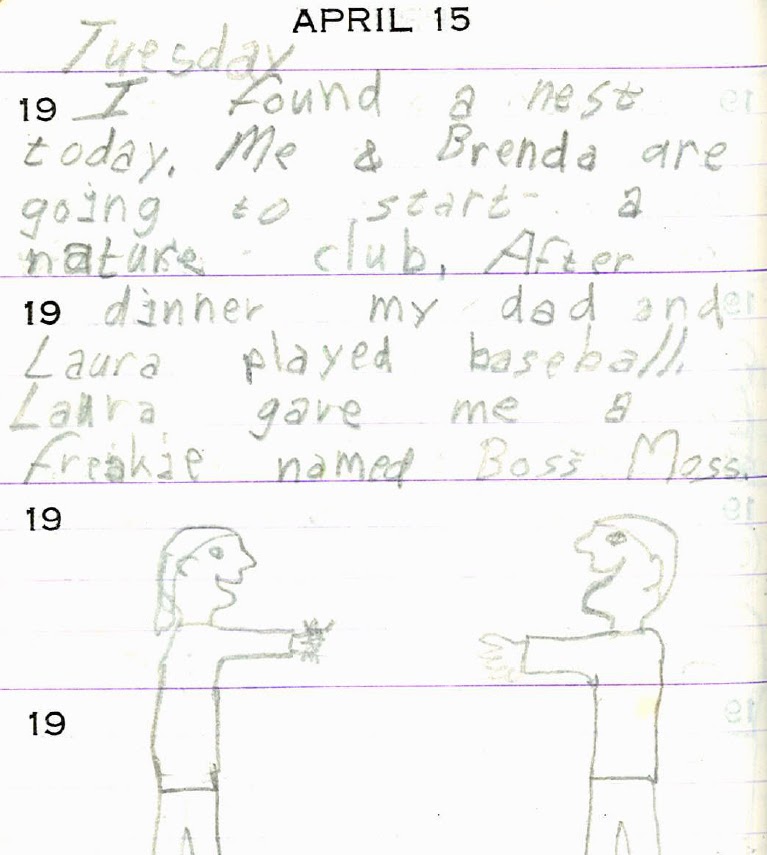 APRIL 15
Tuesday
19 I found a nest
today. Me & Brenda are
going to start a
nature club. After
19 dinner my dad and
Laura played baseball.
Laura gave me a
freakie named Boss Moss.
19
19